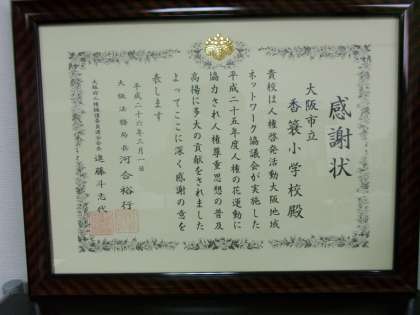 感謝状
大阪市立
香簑小学校殿
貴校は人権啓発活動大阪地域
ネットワーク協議会が実施した
平成二十五年度人権の花運動に
協力され人権尊重思想の普及
高揚に多大の貢献をされました
よってここに深く感謝の意を
表します
平成二十六年三月一日
大阪法務局長 河合裕行
大阪府人権擁護委員連合会長 進藤斗志代